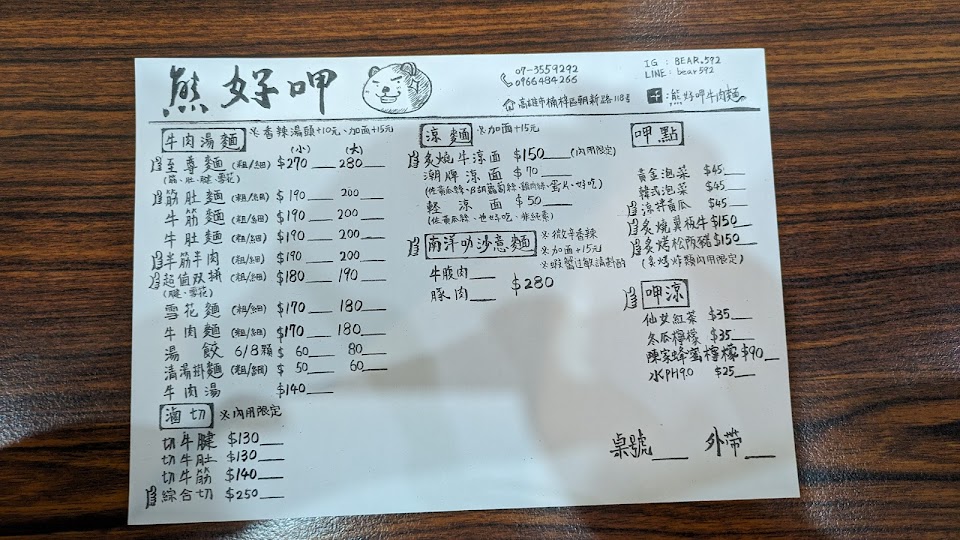 熊好呷
07-3559292
0966484266
高雄市楠梓區朝新路118號
IG：BEAR.592
LINE：bear592
熊好呷牛肉麵
牛肉湯麵 ※香辣湯頭+10元、加面+15元
(小) (大)
至尊麵 (粗/細) $270 280
(筋、肚、腱、雪花)
筋肚麵 (粗/細) $190 200
牛筋麵 (粗/細) $190 200
牛肚麵 (粗/細) $190 200
半筋半肉 (粗/細) $190 200
超值双拼 (粗/細) $180 190
(腱、雪花)
雪花麵 (粗/細) $170 180
牛肉麵 (粗/細) $170 180
湯餃 6/8顆 $ 60 80
清湯掛麵 (粗/細) $ 50 60
牛肉湯 $140
滷切 ※內用限定
切牛腱 $130
切牛肚 $130
切牛筋 $140
綜合切 $250
涼麵 ※加面+15元
炙燒牛涼面 $150 (內用限定)
潮牌涼面 $70
(佐黃瓜絲、胡蘿蔔絲、雞肉絲、蛋片、好吃)
軽涼面 $50
(佐黃瓜絲、也好吃、非純素)
南洋叻沙意麵 ※微辛香辣
※加面+15元
※蝦蟹过敏請斟酌
牛腹肉
豚肉
$280
呷點
黃金泡菜 $45
韓式泡菜 $45
涼拌黃瓜 $45
炙燒翼板牛 $150
炙烤松阪豬 $150
(炙烤炸類內用限定)
呷涼
仙女紅茶 $35
冬瓜檸檬 $35
陳家蜂蜜檸檬 $90
水PH9.0 $25
桌號 外帶